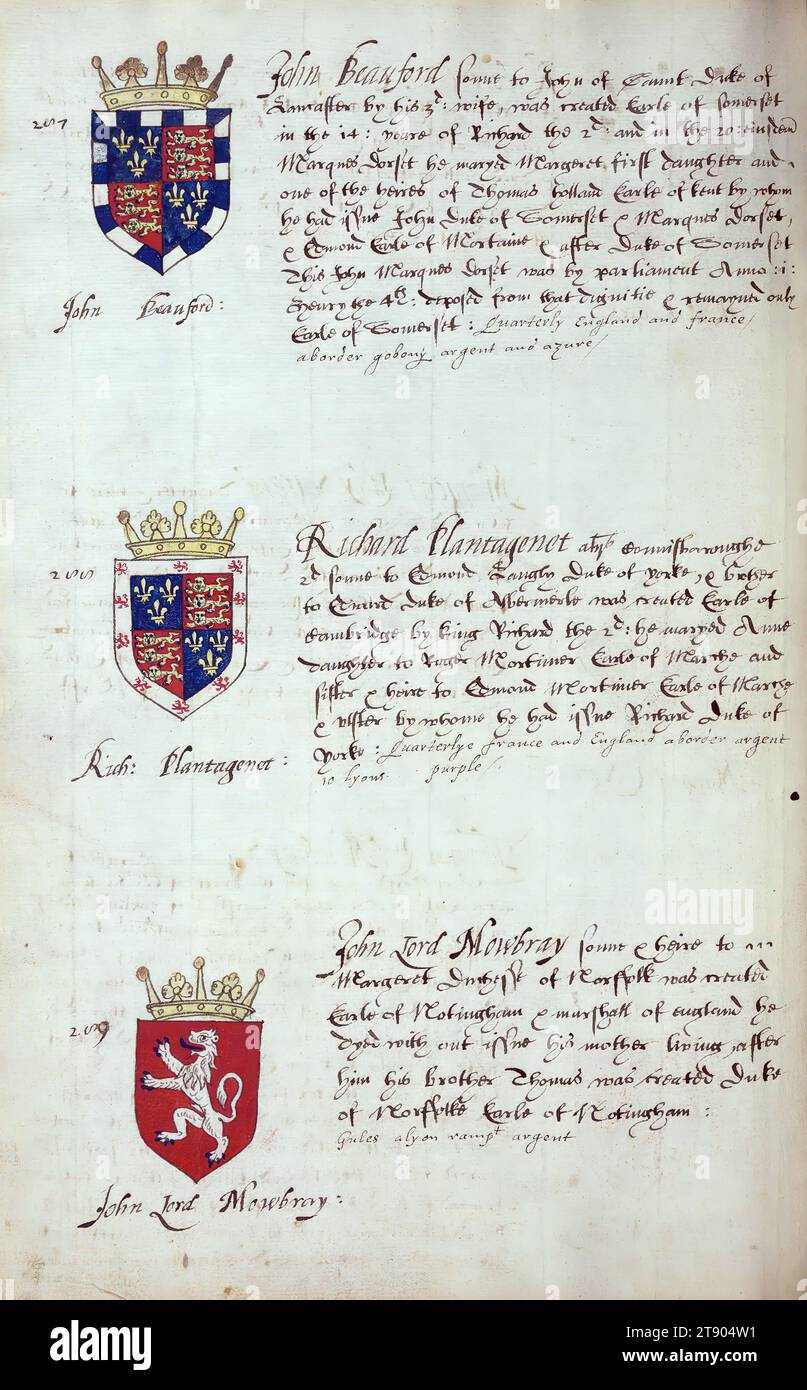 John Beauford sonne to John of Gaunt Duke of
Lancaster by his 3d: wife, was created Earle of Somerset
in the 14: yeare of Richard the 2d: and in the 20: eiusdem
Marques Dorset he maryed Margeret first daughter and
one of the heires of Thomas holland Earle of kent by whom
he had issue John Duke of Somerset & Marques Dorset,
& Edmond Earle of Mortaine & after Duke of Somerset
This John Marques Dorset was by parliament Anno :1:
Henry the 4th: deposed from that dignitie & remayned only
Earle of Somerset : Quarterly England and france/
aborder gobony argent and azure/
207
John Beauford:
Richard Plantagenet Connisboroughe
2d sonne to Edmond Langly Duke of yorke, & brother
to Edward Duke of Albermerle was created Earle of
Cambridge by king Richard the 2d: he maryed Anne
daughter to Roger Mortimer Earle of Marche and
sister & heire to Edmond Mortimer Earle of Marche
& Vlster by whome he had issue Richard Duke of
yorke : Quarterlye france and England aborder argent
10 lyons purple/
208
Rich: Plantagenet:
John Lord Mowbray sonne & heire to
Margeret Duchesse of Norffolk was created
Earle of Notingham & marshall of england he
dyed with out issue his mother living, after
him his brother Thomas was created Duke
of Norffolke Earle of Notingham :
Gules alyon rampt argent
209
John Lord Mowbray:
alamy
alamy
alamy
a
a
a
alamy
Image ID: 2T904W1
www.alamy.com